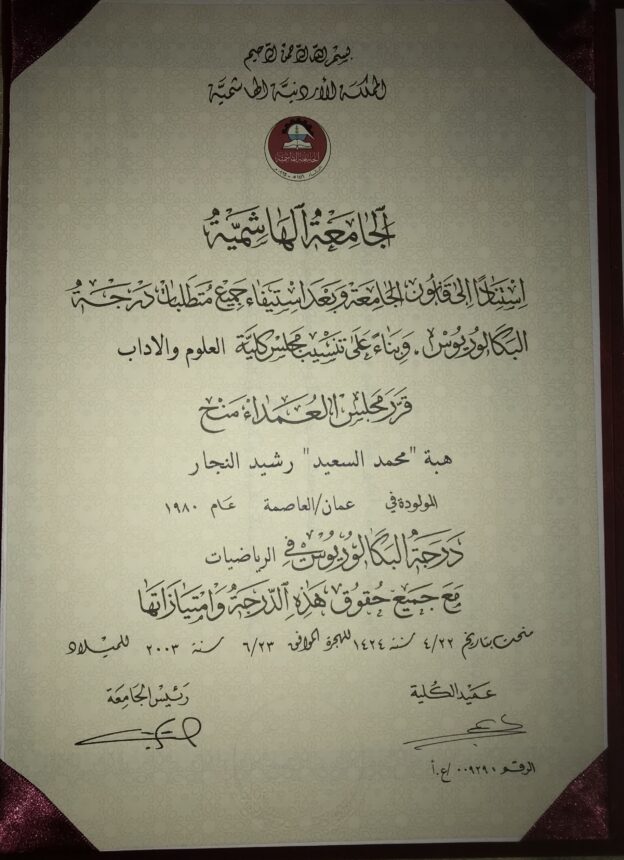 بسم الله الرحمن الرحيم
المملكة الأردنية الهاشمية
الجامعة الهاشمية
الجامعة الهاشمية
إستناداً إلى قانون الجامعة وبعد استيفاء جميع متطلبات درجة
البكالوريوس . وبناءً على تنسيب مجلس كلية العلوم والاداب
قرر مجلس العمداء منح
هبة "محمد السعيد" رشيد النجار
المولودة في عمان/العاصمة عام ١٩٨٠
درجة البكالوريوس في الرياضيات
مع جميع حقوق هذه الدرجة وامتيازاتها
منحت بتاريخ ٤/٢٢ سنة ١٤٢٤ للهجرة الموافق ٦/٢٣ سنة ٢٠٠٣ للميلاد
عميد الكلية رئيس الجامعة
الرقم ٠٠٩٢٩٠ /ع.أ